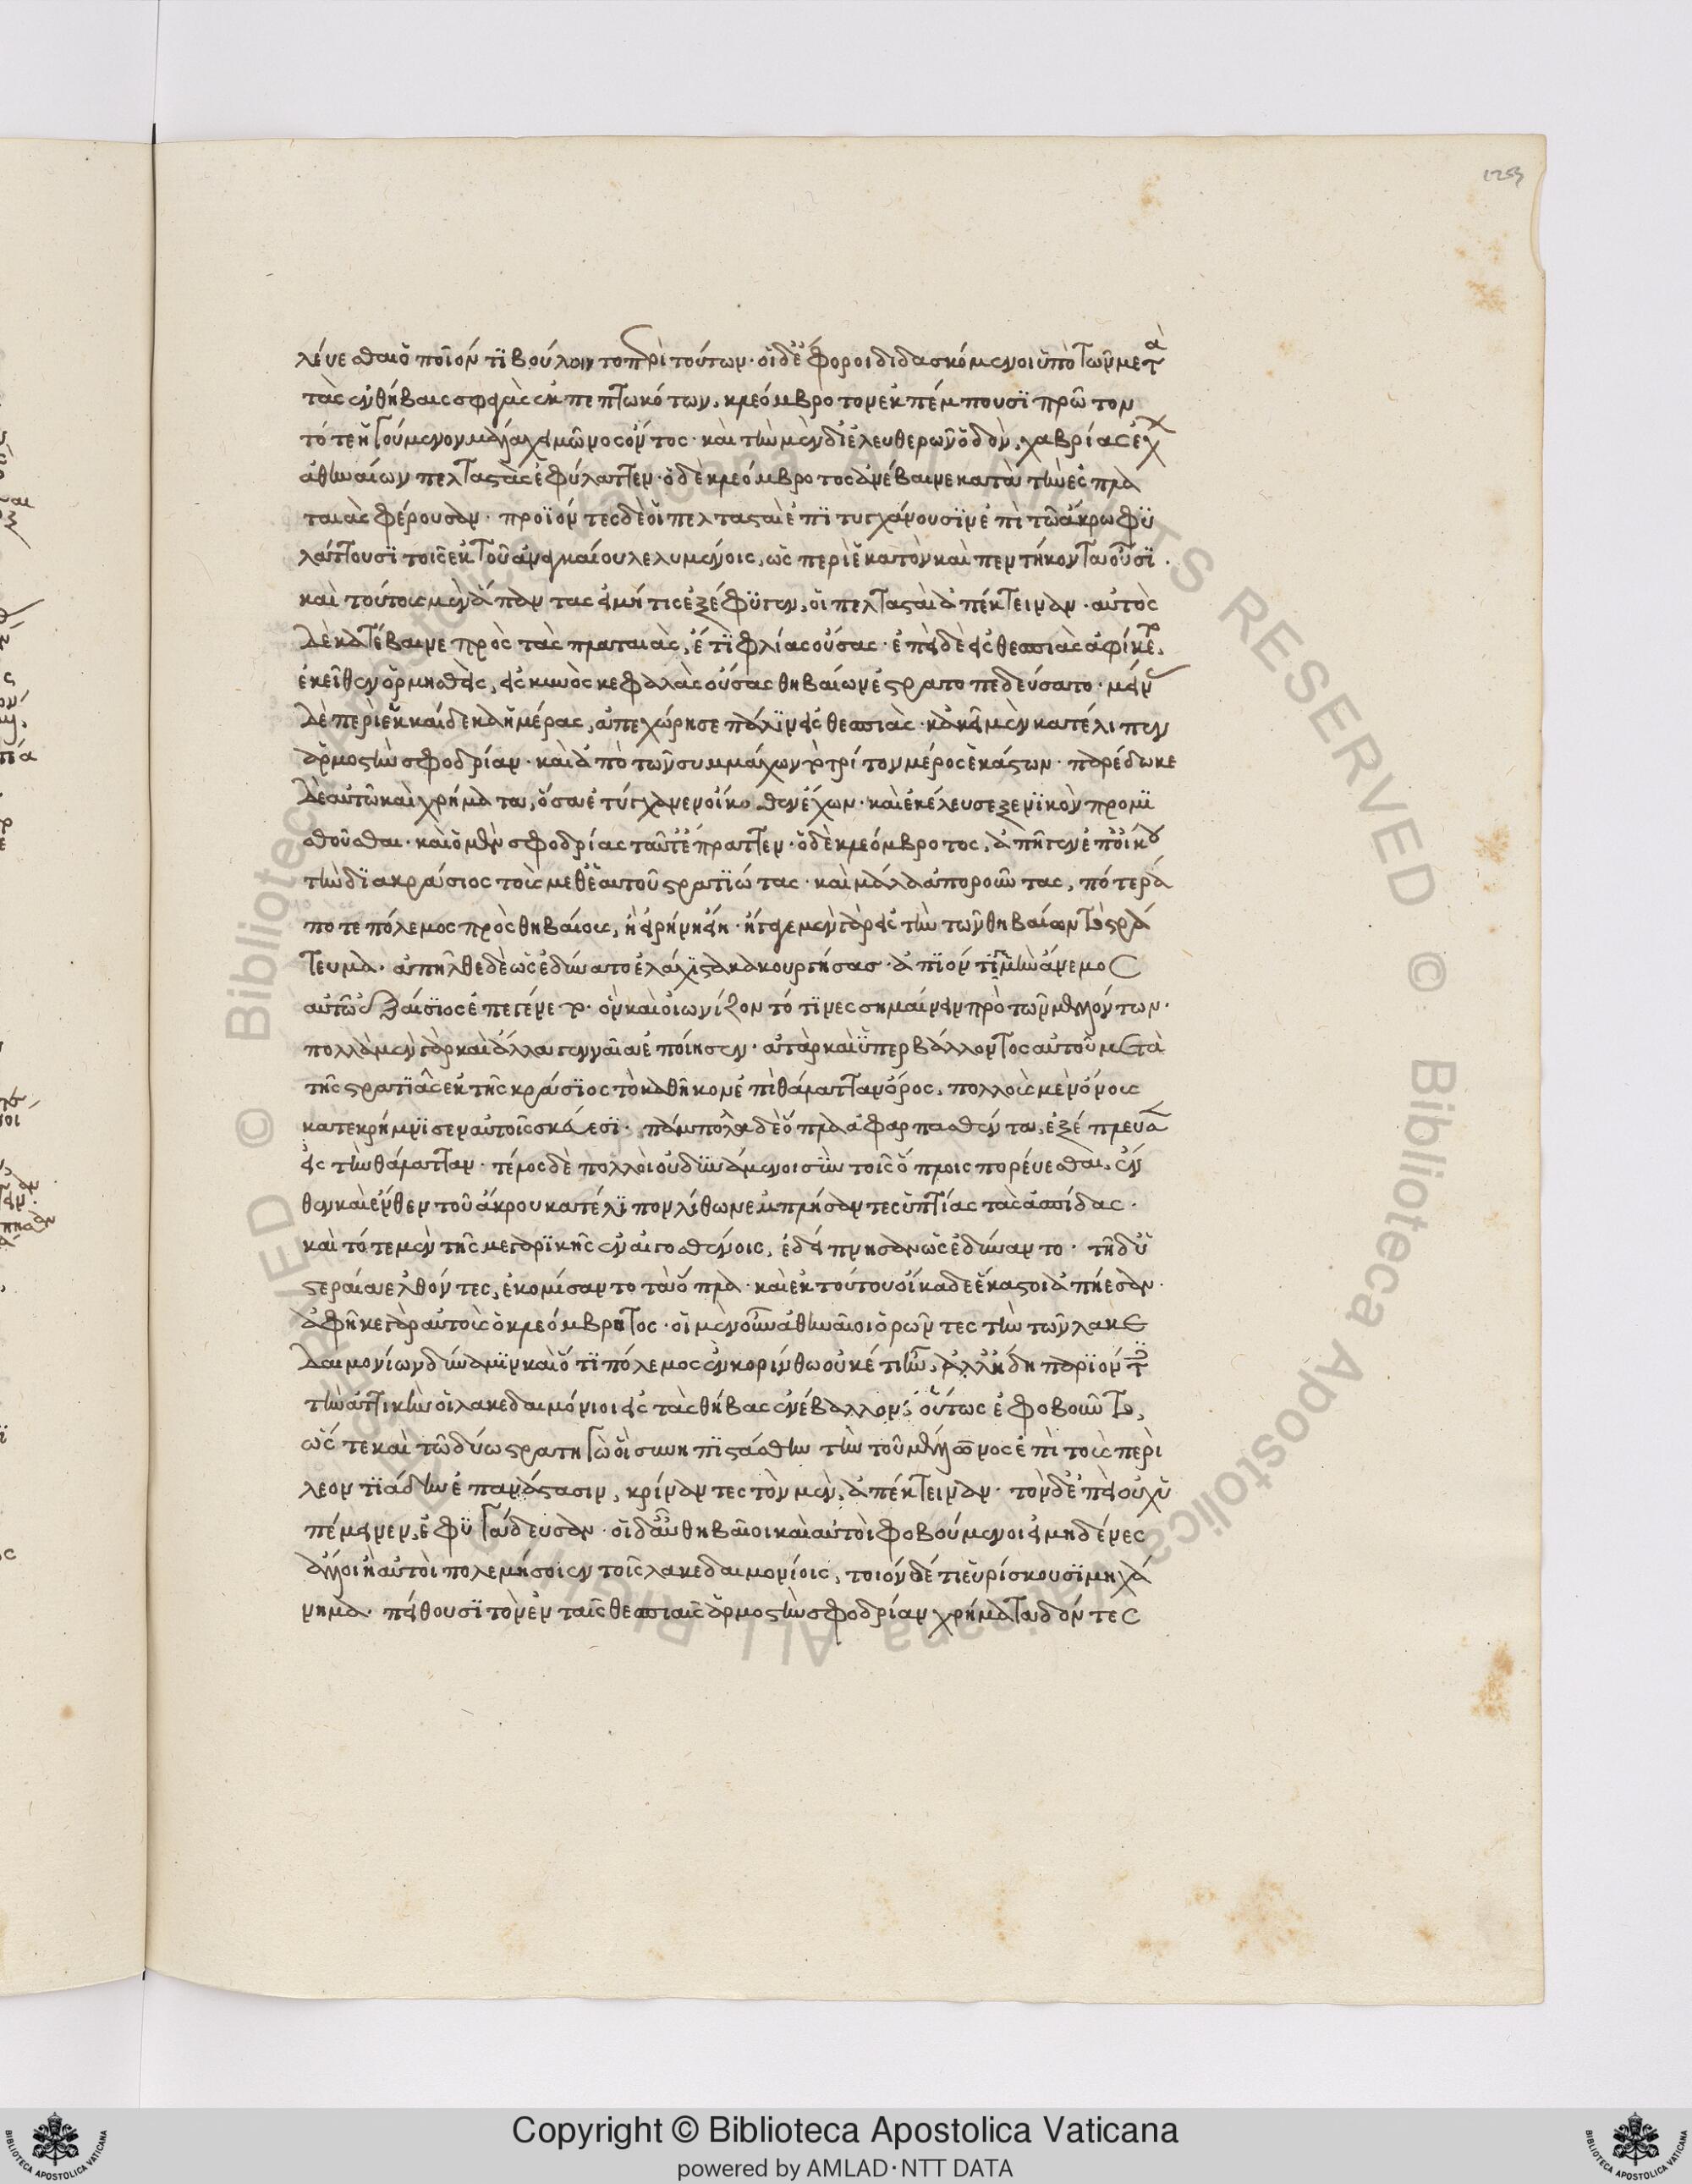 λεύεσθαι ὁποῖόν τϊ βούλοιντο περὶ τούτων· οἱ δ' ἔφοροι διδασκόμενοι ὑπὸ τῶν μετὰ
τὰς ἐν θήβαις σφαγὰς ἐκπεπτωκότων, κλεόμβροτον ἐκπέμπουσϊ πρῶτον
τότε ἡγούμενον μάλα χειμῶνος ὄντος· καὶ τὴν μὲν δι' ἐλευθερῶν ὁδὸν, χαβρίας ἔχ
ἀθηναίων πελταστὰς ἐφύλαττεν· ὁ δὲ κλεόμβροτος ἀνέβαινε κατὰ τὴν ἐς πλα
ταιὰς φέρουσαν· προϊόντες δὲ οἱ πελτασταὶ ἐπϊτυγχάνουσϊν ἐπὶ τῶ ἄκρω φϋ
λάττουσϊ τοῖς ἐκ τοῦ ἀναγκαίου λελυμένοις, ὡς περὶ ἑκατὸν καὶ πεντήκοντα οὖσϊ.
καὶ τούτους μὲν ἅπαντας εἰ μή τις ἐξέφϋγεν, οἱ πελτασταὶ ἀπέκτειναν· αὐτὸς
δὲ κατέβαινε πρὸς τὰς πλαταιὰς, ἔτϊ φιλίας οὔσας· ἐπεὶ δὲ εἰς θεσπιὰς ἀφίκετο,
ἐκεῖθεν ὁρμηθεὶς, εἰς κυνὸς κεφαλὰς οὔσας θηβαίων ἐστρατοπεδεύσατο· μείν
δὲ περὶ ἑκκαίδεκα ἡμέρας, ἀπεχώρησε πάλϊν εἰς θεσπιὰς· κἀκεῖ μὲν κατέλιπεν
ἁρμοστὴν σφοδρίαν· καὶ ἀπὸ τῶν συμμάχων τὸ τρίτον μέρος ἑκάστων· παρέδωκε
δὲ αὐτῶ καὶ χρήματα, ὅσα ἐτύγχανεν οἴκοθεν ἔχων· καὶ ἐκέλευσε ξενϊκὸν προμϊ
σθοῦσθαι· καὶ ὁ μὲν σφοδρίας ταῦτ' ἔπραττεν· ὁ δὲ κλεόμβροτος, ἀπῆγεν ἐπ' οἴκου
τὴν δϊα κραύσιος τοὺς μεθ' ἑαυτοῦ στρατϊώτας· καὶ μάλα ἀποροῦντας, πότερά
ποτε πόλεμος πρὸς θηβαίους, ἢ εἰρήνη εἴη· ἤγαγε μὲν γὰρ εἰς τὴν τῶν θηβαίων τὸ στρά
τευμα· ἀπῆλθε δὲ ὡς ἐδύνατο ἐλάχϊστα κακουργήσας· ἀπϊόντϊ γε μὴν ἄνεμος
αὐτῶ ἐξαίσϊος ἐπεγένετο· ὃν καὶ οἰωνίζοντό τϊνες σημαίνειν πρὸ τῶν μελλόντων·
πολλὰ μὲν γὰρ καὶ ἄλλα γενναῖα ἐποίησεν· ἀτὰρ καὶ ὑπερβάλλοντος αὐτοῦ μετὰ
τῆς στρατϊᾶς ἐκ τῆς κραύσϊος τὸ καθῆκον ἐπὶ θάλατταν ὄρος, πολλοὺς μὲν ὄνους
κατεκρήμνϊσεν αὐτοῖς σκεύεσϊ· πάμπολλα δὲ ὅπλα ἀφαρπασθέντα, ἐξέπλευσ
εἰς τὴν θάλατταν· τέλος δὲ πολλοὶ οὐ δϋνάμενοι σὺν τοῖς ὅπλοις πορεύεσθαι, ἔν
θεν καὶ ἔνθεν τοῦ ἄκρου κατέλϊπον λίθων ἐμπλήσαντες ὑπτίας τὰς ἀσπίδας·
καὶ τότε μὲν τῆς μεγαρϊκῆς ἐν αἰγοσθένοις, ἐδείπνησαν ὡς ἐδύναντο· τῆ δ' ὑ
στεραία ἐλθόντες, ἐκομίσαντο τὰ ὅπλα· καὶ ἐκ τούτου οἴκαδε ἕκαστοι ἀπῄεσαν·
ἀφῆκε γὰρ αὐτοὺς ὁ κλεόμβροτος· οἱ μὲν οὖν ἀθηναῖοι ὁρῶντες τὴν τῶν λακε
δαιμονίων δύναμϊν καὶ ὅτϊ πόλεμος ἐν κορίνθω οὐκέτι ἦν, ἀλλ' ἤδη παρϊόντ
τὴν ἀττικὴν οἱ λακεδαιμόνιοι εἰς τὰς θήβας ἐνέβαλλον· οὕτως ἐφοβοῦντο,
ὥς τε καὶ τὼ δύω στρατηγὼ οἳ συνηπϊστάσθην τὴν τοῦ μέλλωνος ἐπὶ τοὺς περὶ
λεοντϊάδην ἐπανάστασιν, κρίναντες τὸν μὲν, ἀπέκτειναν· τὸν δ' ἐπεὶ οὐχ ὑ
πέμεινεν, ἐφϋγάδευσαν· οἱ δ' αὖ θηβαῖοι καὶ αὐτοὶ φοβούμενοι εἰ μηδένες
ἄλλοι ἢ αὐτοὶ πολεμήσοιεν τοῖς λακεδαιμονίοις, τοιόνδέ τι εὑρίσκουσϊ μηχά
νημα· πείθουσϊ τὸν ἐν ταῖς θεσπιαῖς ἁρμοστὴν σφοδρίαν χρήματα δόντες
Copyright © Biblioteca Apostolica Vaticana
powered by AMLAD·NTT DATA